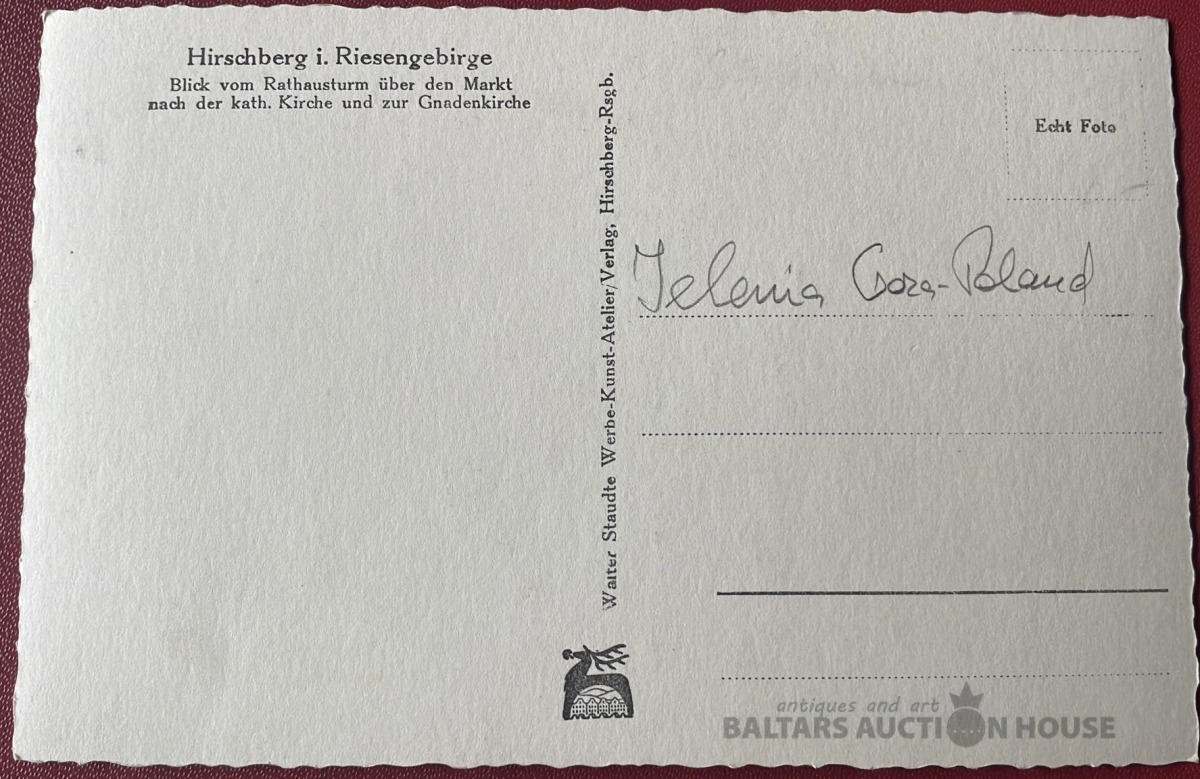 Hirschberg i. Riesengebirge
Blick vom Rathausturm über den Markt
nach der kath. Kirche und zur Gnadenkirche
Walter Staudte Werbe-Kunst-Atelier/Verlag, Hirschberg-Rsgb.
Echt Foto
Jelenia Gora-Poland
antiques and art
BALTARS AUCTION HOUSE